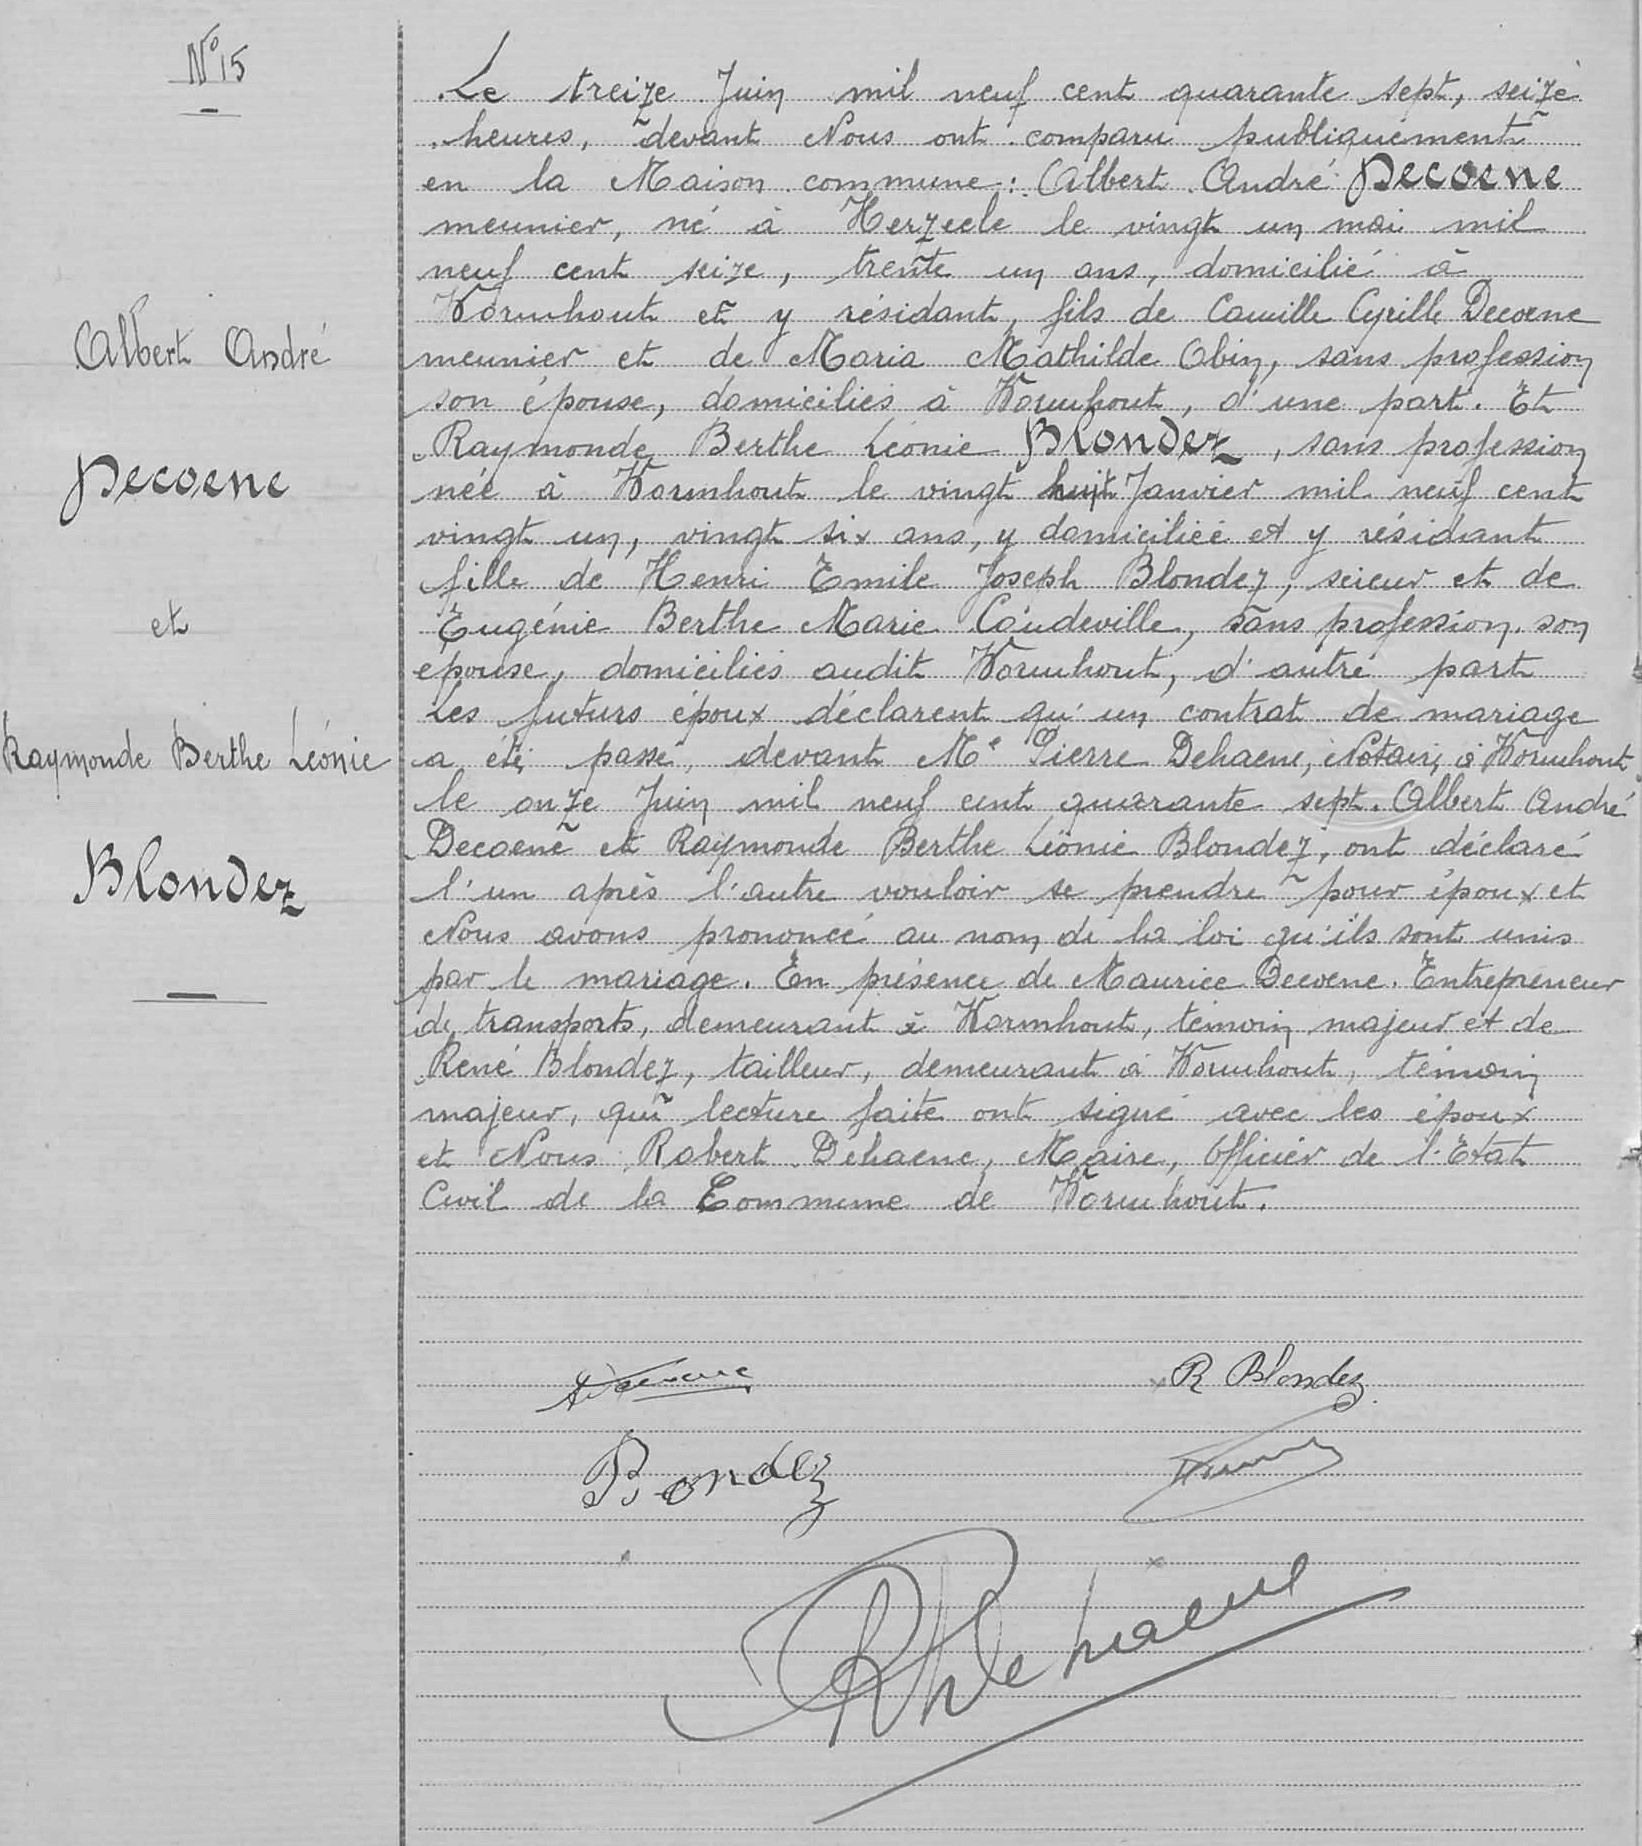 N° 15
Albert André
Decoene
et
Raymonde Berthe Léonie
Blondez
Le treize Juin mil neuf cent quarante sept, seize
heures, devant Nous ont comparu publiquement
en la Maison commune : Albert André Decoene
meunier, né à Herzeele le vingt un mai mil
neuf cent seize, trente un ans, domicilié à
Wormhout et y résidant, fils de Camille Cyrille Decoene
meunier et de Maria Mathilde Obin, sans profession
son épouse, domiciliés à Wormhout, d'une part. Et
Raymonde Berthe Léonie Blondez, sans profession
née à Wormhout le vingt huit Janvier mil neuf cent
vingt un, vingt six ans, y domiciliée et y résidant
fille de Henri Emile Joseph Blondez, scieur et de
Eugénie Berthe Marie Coudeville, sans profession son
épouse, domiciliés audit Wormhout, d'autre part
Les futurs époux déclarent qu'un contrat de mariage
a été passé, devant Me Pierre Dehaene, Notaire à Wormhout
le onze Juin mil neuf cent quarante sept. Albert André
Decoene et Raymonde Berthe Léonie Blondez, ont déclaré
l'un après l'autre vouloir se prendre pour époux et
Nous avons prononcé au nom de la loi qu'ils sont unis
par le mariage. En présence de Maurice Decoene. Entrepreneur
de transports, demeurant à Wormhout, témoin majeur et de
René Blondez, tailleur, demeurant à Wormhout, témoin
majeur, qui lecture faite ont signé avec les époux
et Nous Robert Dehaene, Maire, Officier de l'Etat
Civil de la Commune de Wormhout.
R Blondez
Blondez
R Dehaene